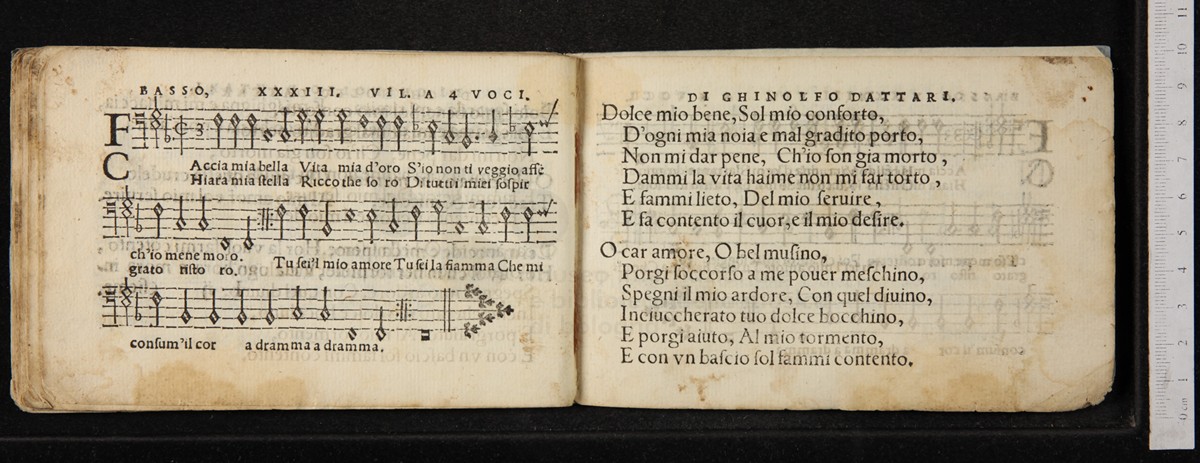 BASSO, XXXIII. VIL. A 4 VOCI.
F Accia mia bella Vita mia d'oro S'io non ti veggio affè
C Hiara mia ſtella Ricco the ſo ro Di tutti i miei ſoſpir
ch'io mene moro. Tu ſei'l mio amore Tu ſei la fiamma Che mi
grato riſto ro.
conſum'il cor a dramma a dramma.
DI GHINOLFO DATTARI.
Dolce mio bene, Sol mio conforto,
D'ogni mia noia e mal gradito porto,
Non mi dar pene, Ch'io ſon gia morto,
Dammi la vita haime non mi far torto,
E fammi lieto, Del mio ſeruire,
E fa contento il cuor, e il mio deſire.
O car amore, O bel muſino,
Porgi ſoccorſo a me pouer meſchino,
Spegni il mio ardore, Con quel diuino,
Inciuccherato tuo dolce bocchino,
E porgi aiuto, Al mio tormento,
E con vn baſcio ſol fammi contento.
0 cm 1 2 3 4 5 6 7 8 9 10 11